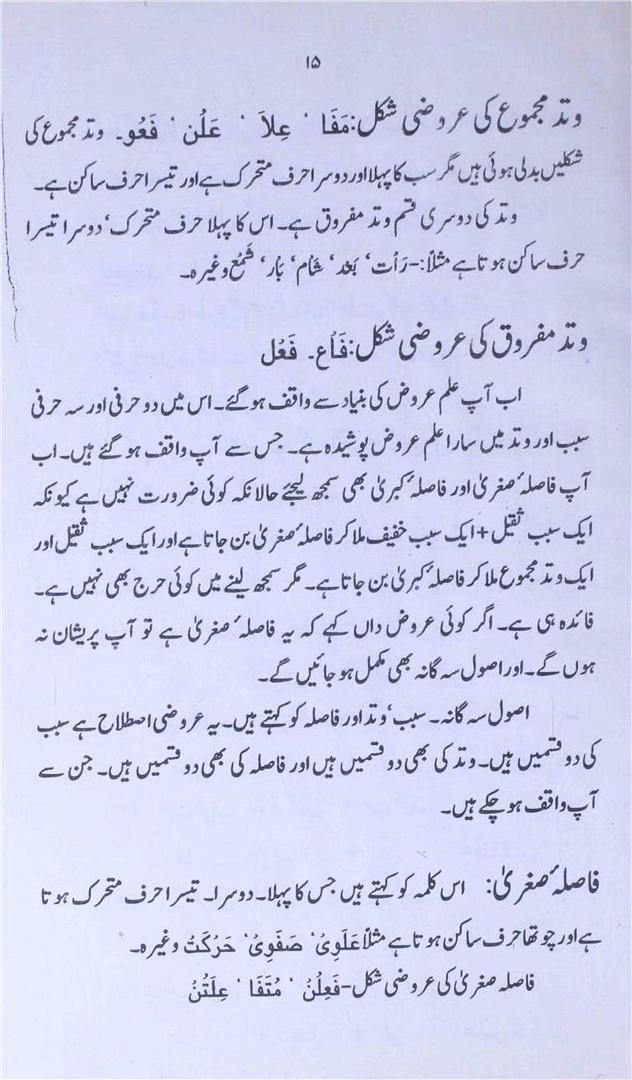 ۱۵
وتد مجموع کی عروضی شکل: مَفَا ‘ عِلاَ ‘ عَلُن ‘ فَعُو۔ وتد مجموع کی
شکلیں بدلی ہوئی ہیں مگر سب کا پہلا اور دوسرا حرف متحرک ہے اور تیسرا حرف ساکن ہے۔
وتد کی دوسری قسم وتد مفروق ہے۔ اس کا پہلا حرف متحرک‘ دوسرا تیسرا
حرف ساکن ہوتا ہے مثلاً:- رَأت‘ بَعد‘ شَام‘ بَار‘ شَمْع وغیرہ۔
وتد مفروق کی عروضی شکل: فَاْع۔ فَعْل
اب آپ علم عروض کی بنیاد سے واقف ہو گئے۔ اس میں دو حرفی اور سہ حرفی
سبب اور وتد میں سارا علم عروض پوشیدہ ہے۔ جس سے آپ واقف ہو گئے ہیں۔ اب
آپ فاصلۂ صغریٰ اور فاصلۂ کبریٰ بھی سمجھ لیجئے حالانکہ کوئی ضرورت نہیں ہے کیونکہ
ایک سبب ثقیل + ایک سبب خفیف ملا کر فاصلۂ صغریٰ بن جاتا ہے اور ایک سبب ثقیل اور
ایک وتد مجموع ملا کر فاصلۂ کبریٰ بن جاتا ہے۔ مگر سمجھ لینے میں کوئی حرج بھی نہیں ہے۔
فائدہ ہی ہے۔ اگر کوئی عروض داں کہے کہ یہ فاصلۂ صغریٰ ہے تو آپ پریشان نہ
ہوں گے۔ اور اصول سہ گانہ بھی مکمل ہو جائیں گے۔
اصول سہ گانہ۔ سبب‘ وتد اور فاصلہ کو کہتے ہیں۔ یہ عروضی اصطلاح ہے سبب
کی دو قسمیں ہیں۔ وتد کی بھی دو قسمیں ہیں اور فاصلہ کی بھی دو قسمیں ہیں۔ جن سے
آپ واقف ہو چکے ہیں۔
فاصلۂ صغریٰ: اس کلمہ کو کہتے ہیں جس کا پہلا۔ دوسرا۔ تیسرا حرف متحرک ہوتا
ہے اور چوتھا حرف ساکن ہوتا ہے مثلاً عَلَوِیْ‘ صَفَوِیْ‘ حَرَکَتْ وغیرہ۔
فاصلہ صغریٰ کی عروضی شکل- فَعِلُنْ ‘ مُتَفَا ‘ عِلَتُنْ